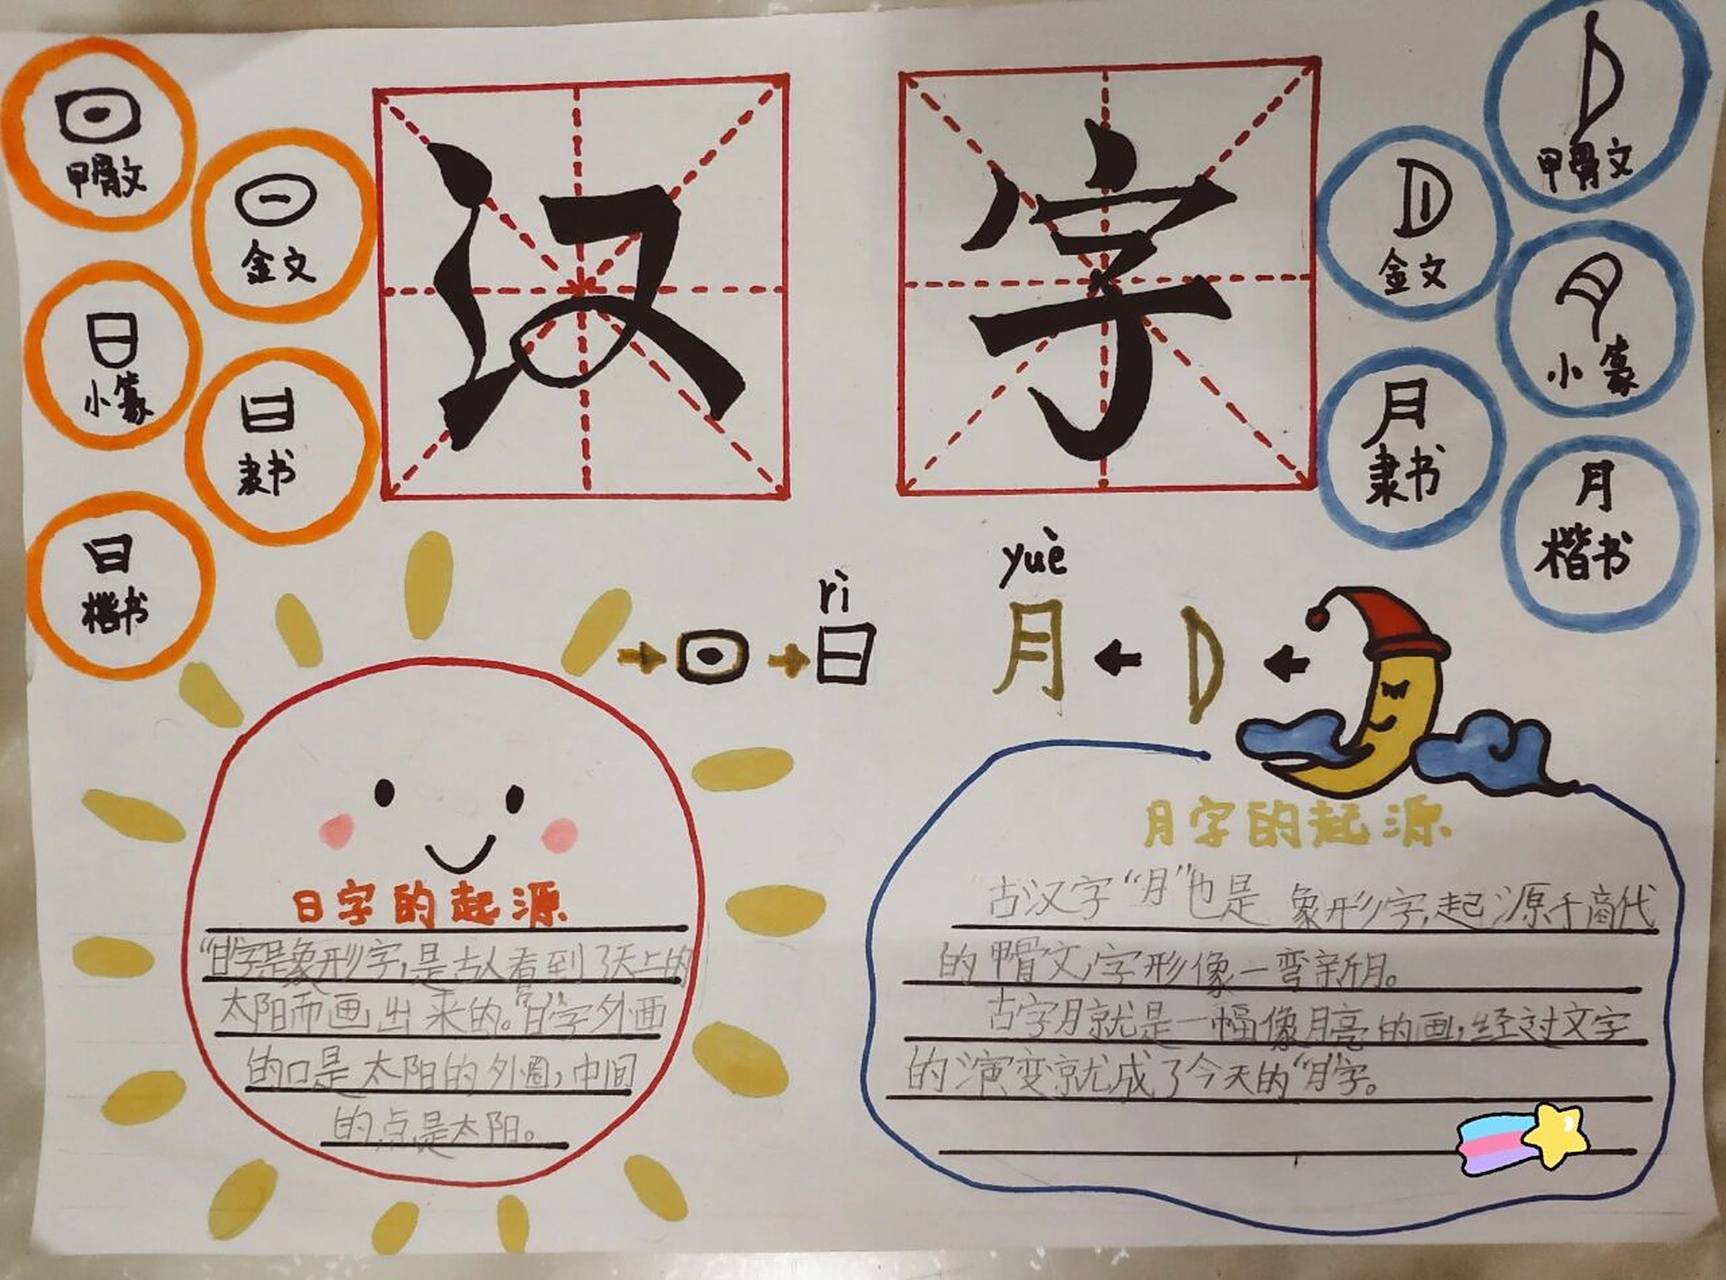 汉字
甲骨文
金文
小篆
日
隶书
日
楷书
甲骨文
金文
小篆
月
隶书
月
楷书
rì
日
yuè
月
日字的起源
“日”字是象形字,是古人看到了天上的
太阳而画出来的。“日”字外画
的口是太阳的外圈,中间
的点是太阳。
月字的起源
古汉字“月”也是象形字,起源于商代
的甲骨文,字形像一弯新月。
古字月就是一幅像月亮的画,经过文字
的演变就成了今天的“月”字。